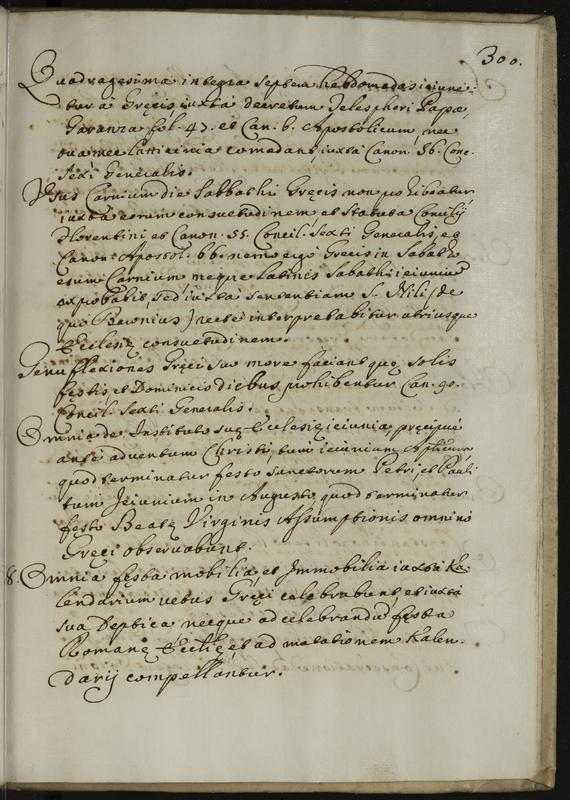 300.
Quadragesimæ integra septem hebdomadas ieiune-
tur à Gręcis iuxta decretum Telesphori Papæ,
Garanza fol. 47. et Can. 6. Apostolicum, nec
oua nec lacticinia comedant, iuxta Canon. 56. Conc.
Sexti Generalis.
Vsus Carnium die Sabbathi Gręcis non prohibeatur
iuxta eorum consuetudinem et statuta Concilij
Florentini et Canon. 55. Concil. Sexti Generalis, et
Canon. Apostol. 66. nemo ergo Grecis in Sabatho
esum Carnium neque latinis Sabathi ieiunium
exprobabit sed iuxta sententiam S. Nili (de
quo Baronius) recte interpretabitur utriusque
Ecclesię consuetudinem.
Genuflexiones Gręci suo more faciant quę solis
fęstis et Dominicis diebus prohibentur Can. 90.
Concil. Sexti Generalis.
Omnia de Instituto suę Ecclesię ieiunia, pręcipuè
antè aduentum Christi, tum ieiunium Apostolicum
quod terminatur festo sanctorum Petri, et Pauli
tum Jeiunium in Augusto quod terminatur
fęsto Beatę Virginis Assumptionis omnino
Gręci obseruabunt.
8. Omnia fęsta mobilia, et Immobilia iuxta Ka-
lendarium uetus Gręci celebrabunt et iuxta
sua Teptica necque ad celebrandum fęsta
Romanę Ecclię et ad mutationem Kalen-
darij compellantur.